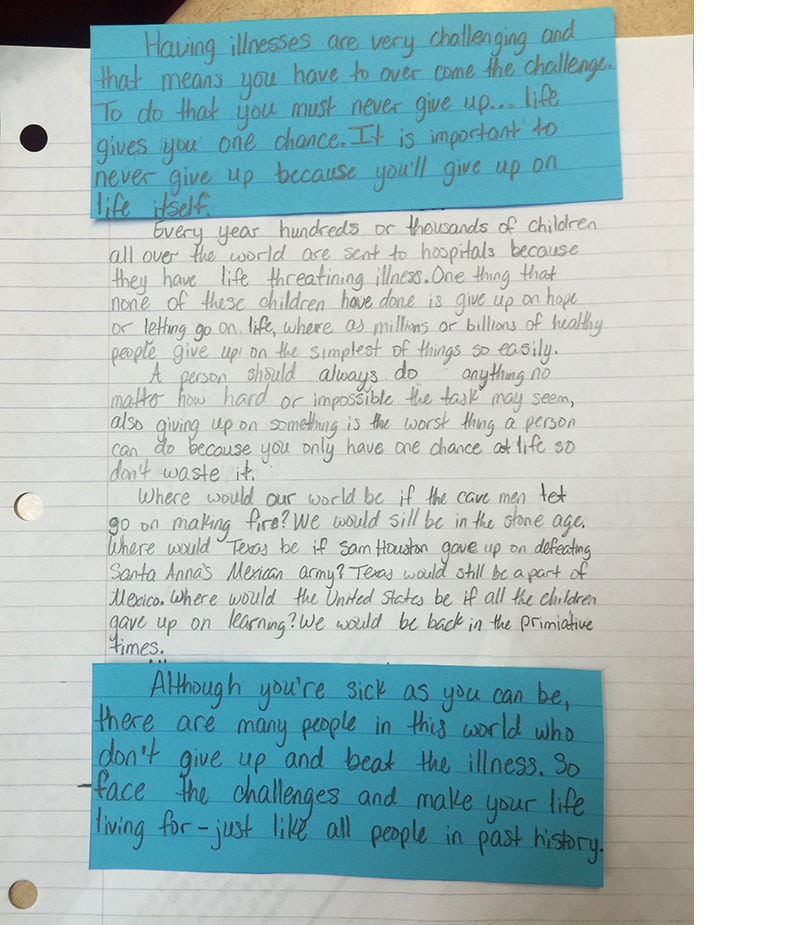 Having illnesses are very challenging and
that means you have to over come the challenge.
To do that you must never give up... life
gives you one chance. It is important to
never give up because you'll give up on
life itself.
Every year hundreds or thousands of children
all over the world are sent to hospitals because
they have life threatining illness. One thing that
none of these children have done is give up on hope
or letting go on life, where as millions or billions of healthy
people give up on the simplest of things so easily.
A person should always do anything no
matter how hard or impossible the task may seem,
also giving up on something is the worst thing a person
can do because you only have one chance at life so
don't waste it.
Where would our world be if the cave men let
go on making fire? We would sill be in the stone age.
Where would Texas be if Sam Houston gave up on defeating
Santa Anna's Mexican army? Texas would still be a part of
Mexico. Where would the United States be if all the children
gave up on learning? We would be back in the primiative
times.
Although you're sick as you can be,
there are many people in this world who
don't give up and beat the illness. So
face the challenges and make your life
living for - just like all people in past history.